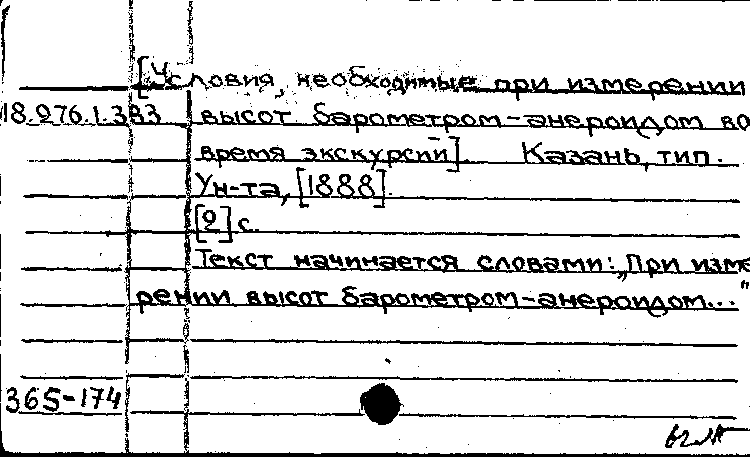 [Условия, необходимые при измерении
18.276.1.383 высот барометром-анероидом во
время экскурсий]. Казань, тип.
Ун-та, [1888].
[2] с.
Текст начинается словами: „При изме
рении высот барометром-анероидом..."
365-174